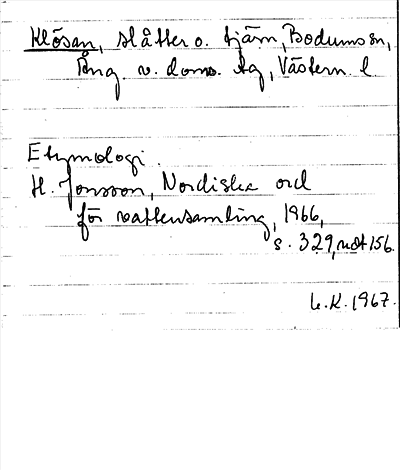 Klösan, slåtter o. tjärn, Bodums sn,
Ång. v. doms. lg, Västern. l
Etymologi.
H. Jonsson, Nordiska ord
för vattensamling, 1966,
s. 329, not 156.
L.K. 1967.